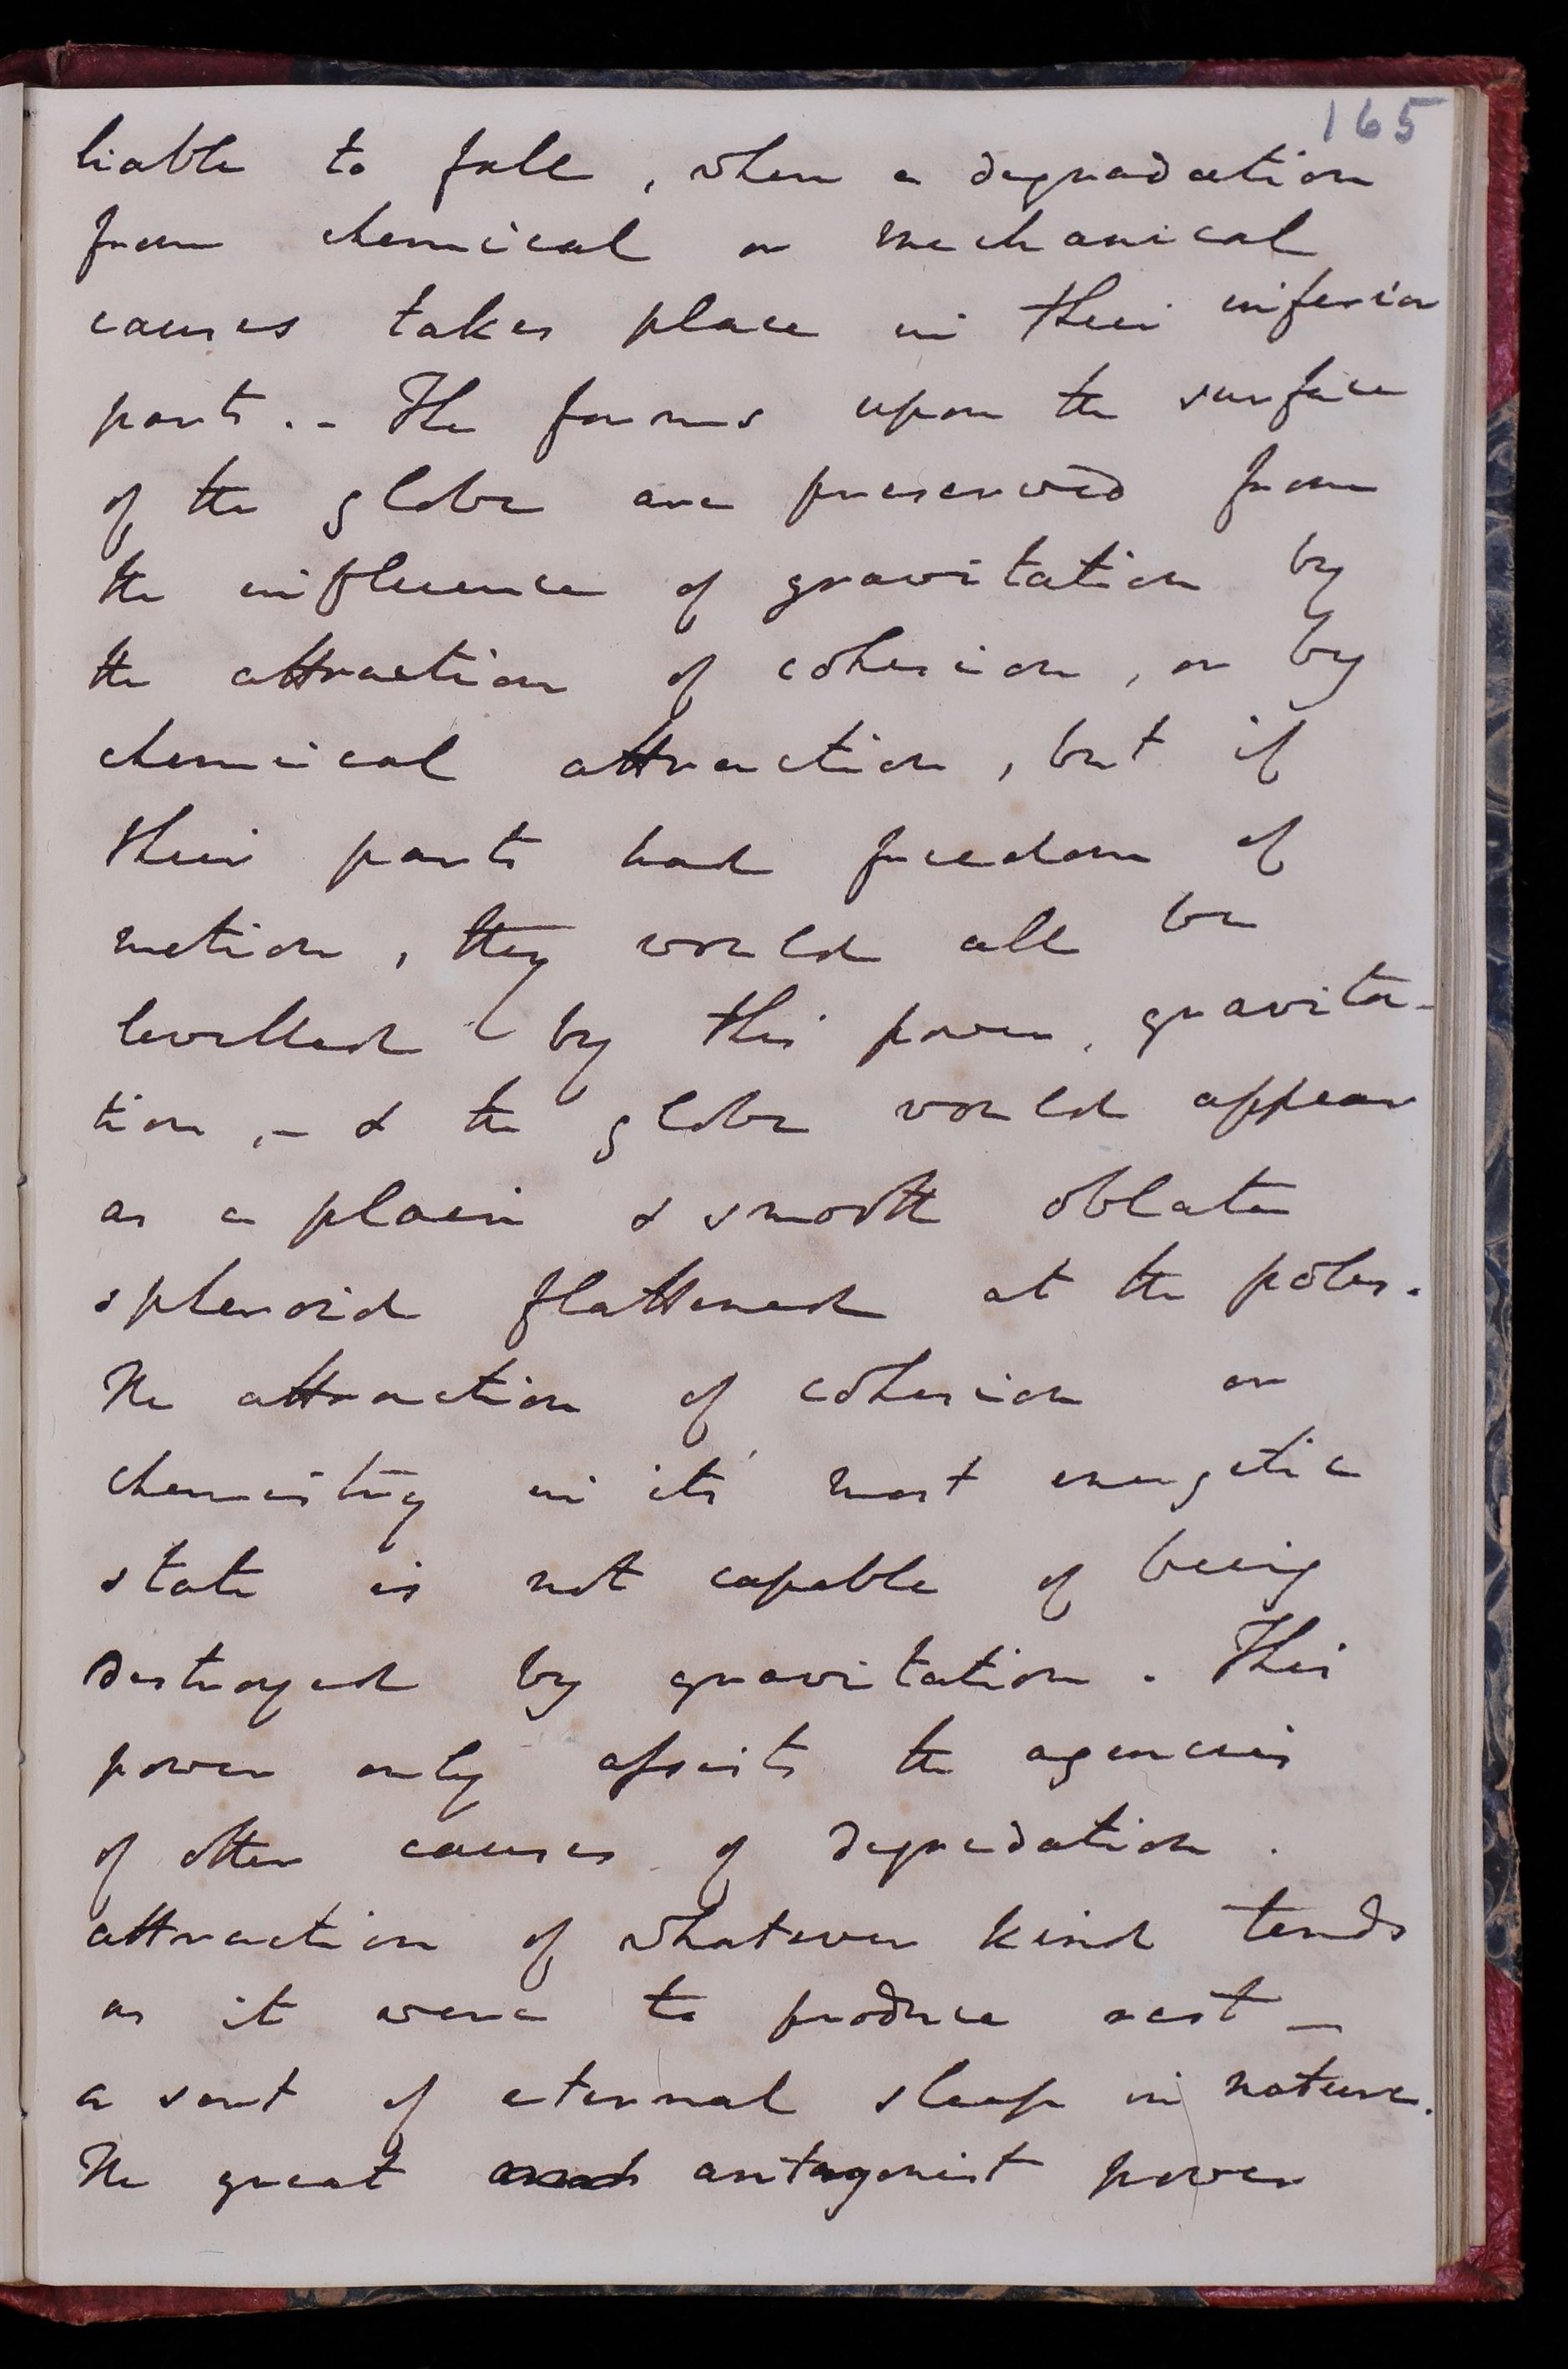 165
liable to fall, when a degradation
from chemical or mechanical
causes takes place in their inferior
parts. - The forms upon the surface
of the globe are preserved from
the influence of gravitation by
the attraction of cohesion, or by
chemical attraction, but if
their parts had freedom of
motion, they would all be
levelled by this power, gravita-
tion, - & the globe would appear
as a plain & smooth oblate
spheroid flattened at the poles.
The attraction of cohesion or
chemistry in its' most energetic
state is not capable of being
destroyed by gravitation. This
power only assists the agencies
of other causes of degredation.
attraction of whatever kind tends
as it were to produce rest -
a sort of eternal sleep in nature.
The great antagonist power